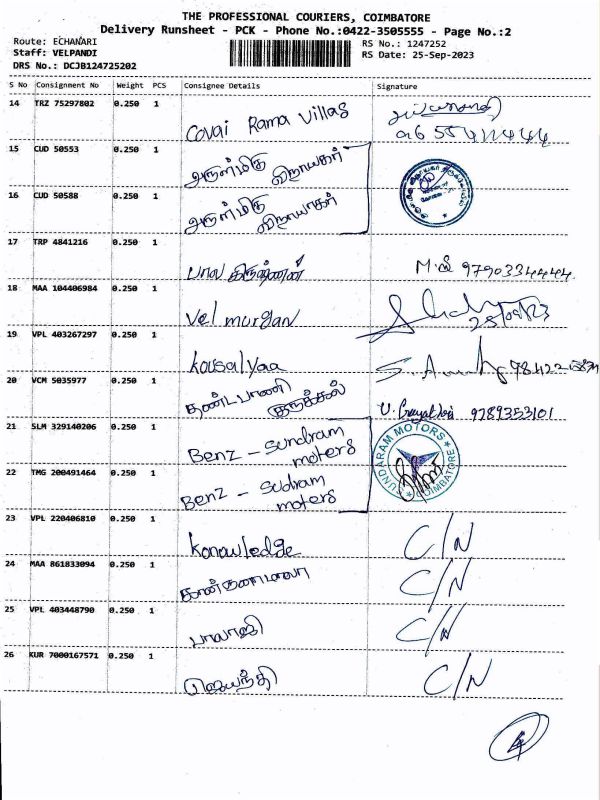 THE PROFESSIONAL COURIERS, COIMBATORE
Delivery Runsheet - PCK - Phone No.:0422-3505555 - Page No.:2
Route: ECHANARI
RS No.: 1247252
Staff: VELPANDI
RS Date: 25-Sep-2023
DRS No.: DCJB124725202
S No Consignment No Weight PCS Consignee Details Signature
14 TRZ 75297802 0.250 1 Covai Rama Villas
15 CUD 50553 0.250 1 அருள்மிகு
விநாயகர்
16 CUD 50588 0.250 1 அருள்மிகு
விநாயகர்
17 TRP 4841216 0.250 1 பால 9790334444
18 MAA 104406984 0.250 1 Vel murgan
25/09/23
19 VPL 403267297 0.250 1 kousalyaa
20 VCM 5035977 0.250 1 தண்டபாணி
9789353101
21 SLM 329140206 0.250 1 Benz - Sundram
moters
SUNDARAM MOTORS
COIMBATORE
22 TMG 200491464 0.250 1 Benz - Sudram
moters
23 VPL 220406810 0.250 1 Konowledge C/N
24 MAA 861833094 0.250 1 C/N
25 VPL 403448790 0.250 1 பாலாஜி C/N
26 KUR 7000167571 0.250 1 ஜெயந்தி C/N